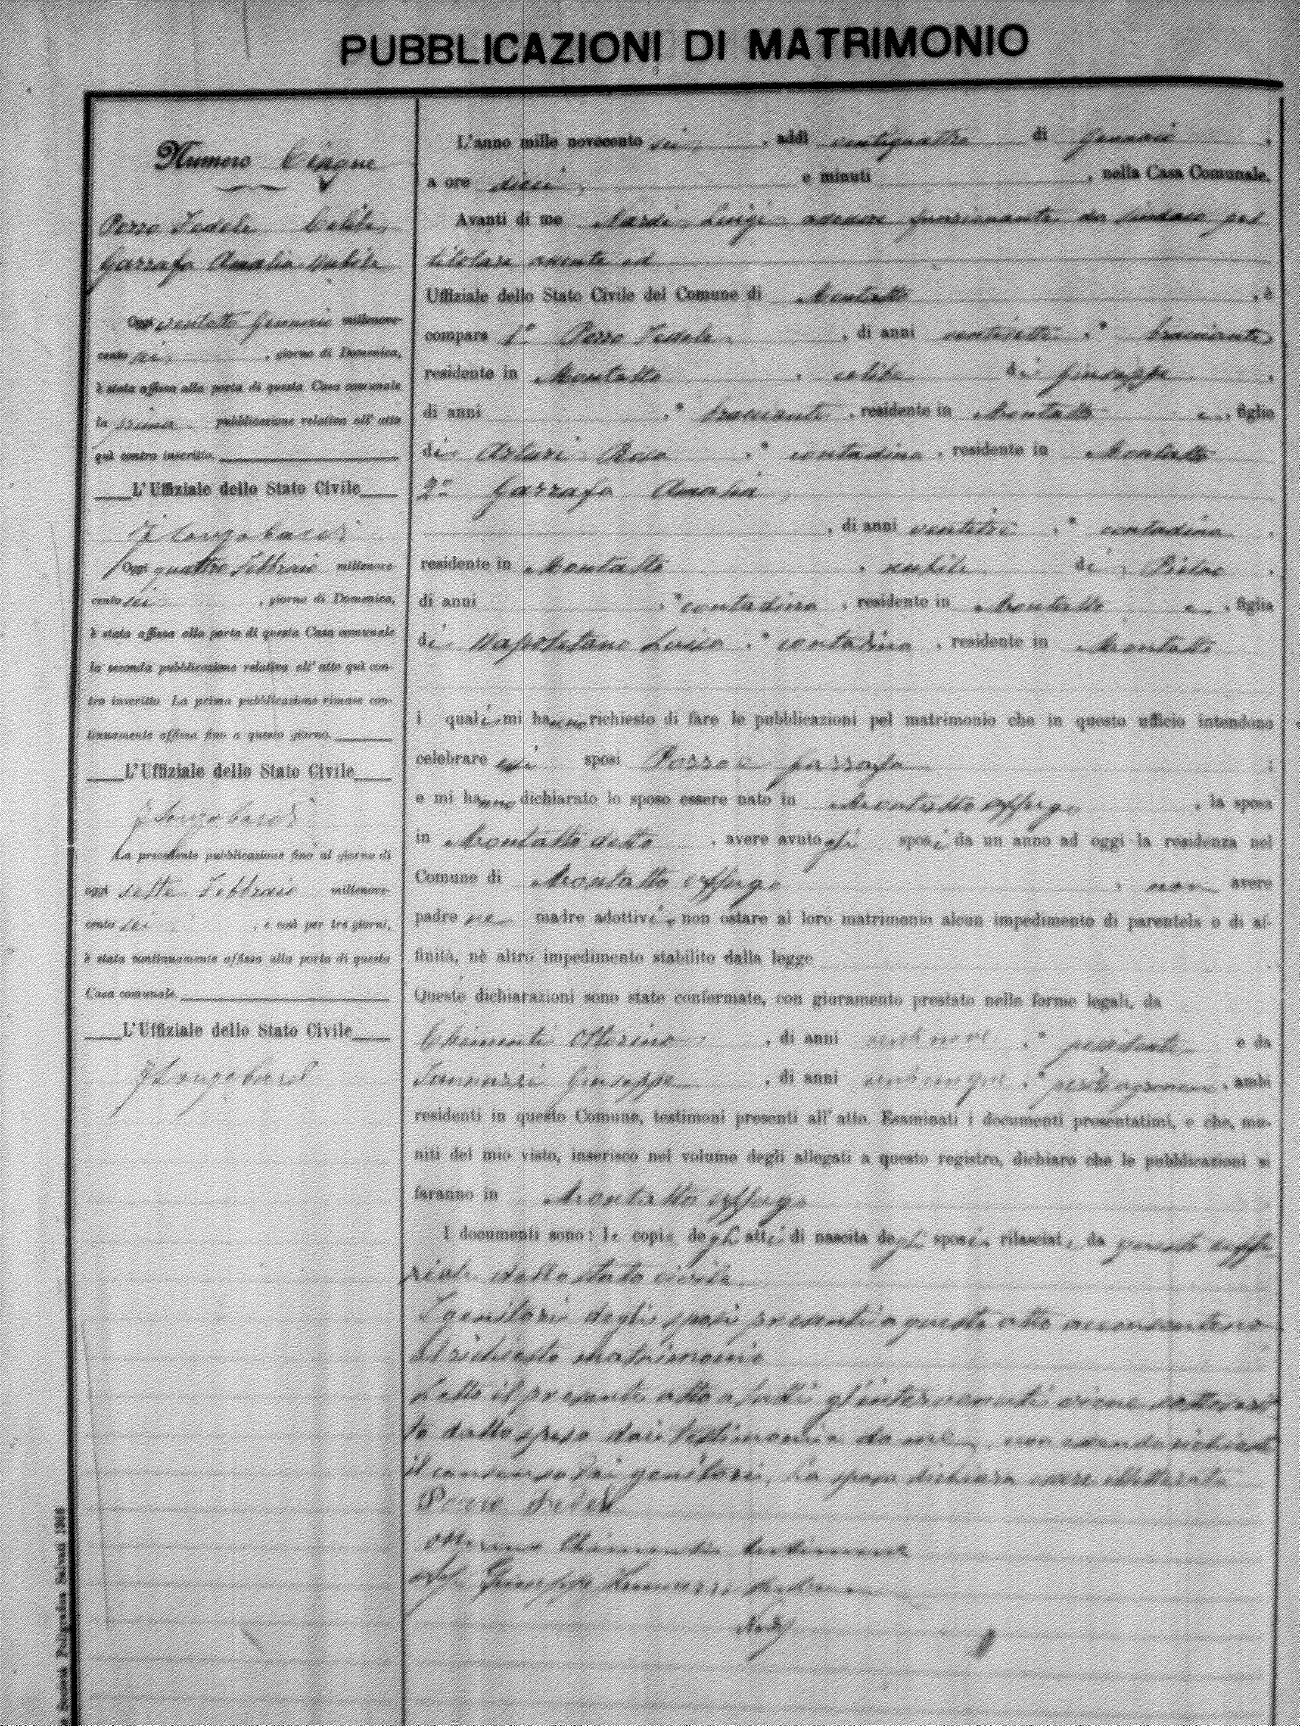 PUBBLICAZIONI DI MATRIMONIO
Numero Cinque
Porro Fedele Celibe
Garrafa Amalia nubile
Oggi ventotto Gennaio millenove-
cento sei, giorno di Domenica,
è stata affissa alla porta di questa Casa comunale
la prima pubblicazione relativa all'atto
quì contro inscritto.
L'Uffiziale dello Stato Civile
Oggi quattro Febbraio millenove-
cento sei, giorno di Domenica,
è stata affissa alla porta di questa Casa comunale
la seconda pubblicazione relativa all'atto quì con-
tro inscritto. La prima pubblicazione rimase con-
tinuamente affissa fino a questo giorno.
L'Uffiziale dello Stato Civile
La precedente pubblicazione fino al giorno di
oggi sette Febbraio millenove-
cento sei, e così per tre giorni,
è stata continuamente affissa alla porta di questa
Casa comunale.
L'Uffiziale dello Stato Civile
L'anno mille novecento sei, addì ventiquattro di Gennaio,
a ore dieci, e minuti , nella Casa Comunale.
Avanti di me Nardi Luigi assessore funzionante da sindaco pel
titolare assente ed
Uffiziale dello Stato Civile del Comune di Montalto, è
compars 1° Porro Fedele, di anni ventisette, bracciante,
residente in Montalto, celibe di Giuseppe,
di anni , bracciante, residente in Montalto e, figlio
di Arturi Rosa, contadina, residente in Montalto
2° Garrafa Amalia,
, di anni ventitre, contadina,
residente in Montalto, nubile di Pietro,
di anni , contadino, residente in Montalto e, figlia
di Napolitano Luisa, contadina, residente in Montalto
i quali mi hanno richiesto di fare le pubblicazioni pel matrimonio che in questo ufficio intendono
celebrare essi sposi Porro e Garrafa;
e mi hanno dichiarato lo sposo essere nato in Montalto Uffugo, la sposa
in Montalto detto, avere avuto gli sposi da un anno ad oggi la residenza nel
Comune di Montalto Uffugo, non avere
padre ne madre adottivi, non ostare al loro matrimonio alcun impedimento di parentela o di af-
finità, nè altro impedimento stabilito dalla legge
Queste dichiarazioni sono state confermate, con giuramento prestato nelle forme legali, da
Chimenti Otterino, di anni , possidente e da
Giuseppe, di anni , perito agronomo, ambi
residenti in questo Comune, testimoni presenti all'atto. Esaminati i documenti presentatimi, e che, mu-
niti del mio visto, inserisco nel volume degli allegati a questo registro, dichiaro che le pubblicazioni si
faranno in Montalto Uffugo
I documenti sono: le copie degli atti di nascita degli sposi, rilasciate da questo uffi-
ziale dello stato civile
I genitori degli sposi presenti a questo atto acconsentono
al richiesto matrimonio
Letto il presente atto a tutti gl'intervenuti viene sottoscrit-
to dallo sposo dai testimoni e da me, non essendo richiesto
il consenso dei genitori. La sposa dichiara essere illetterata
Porro Fedele
Otterino Chimenti testimone
Giuseppe
Nardi
Società Poligrafica Salvati 1905